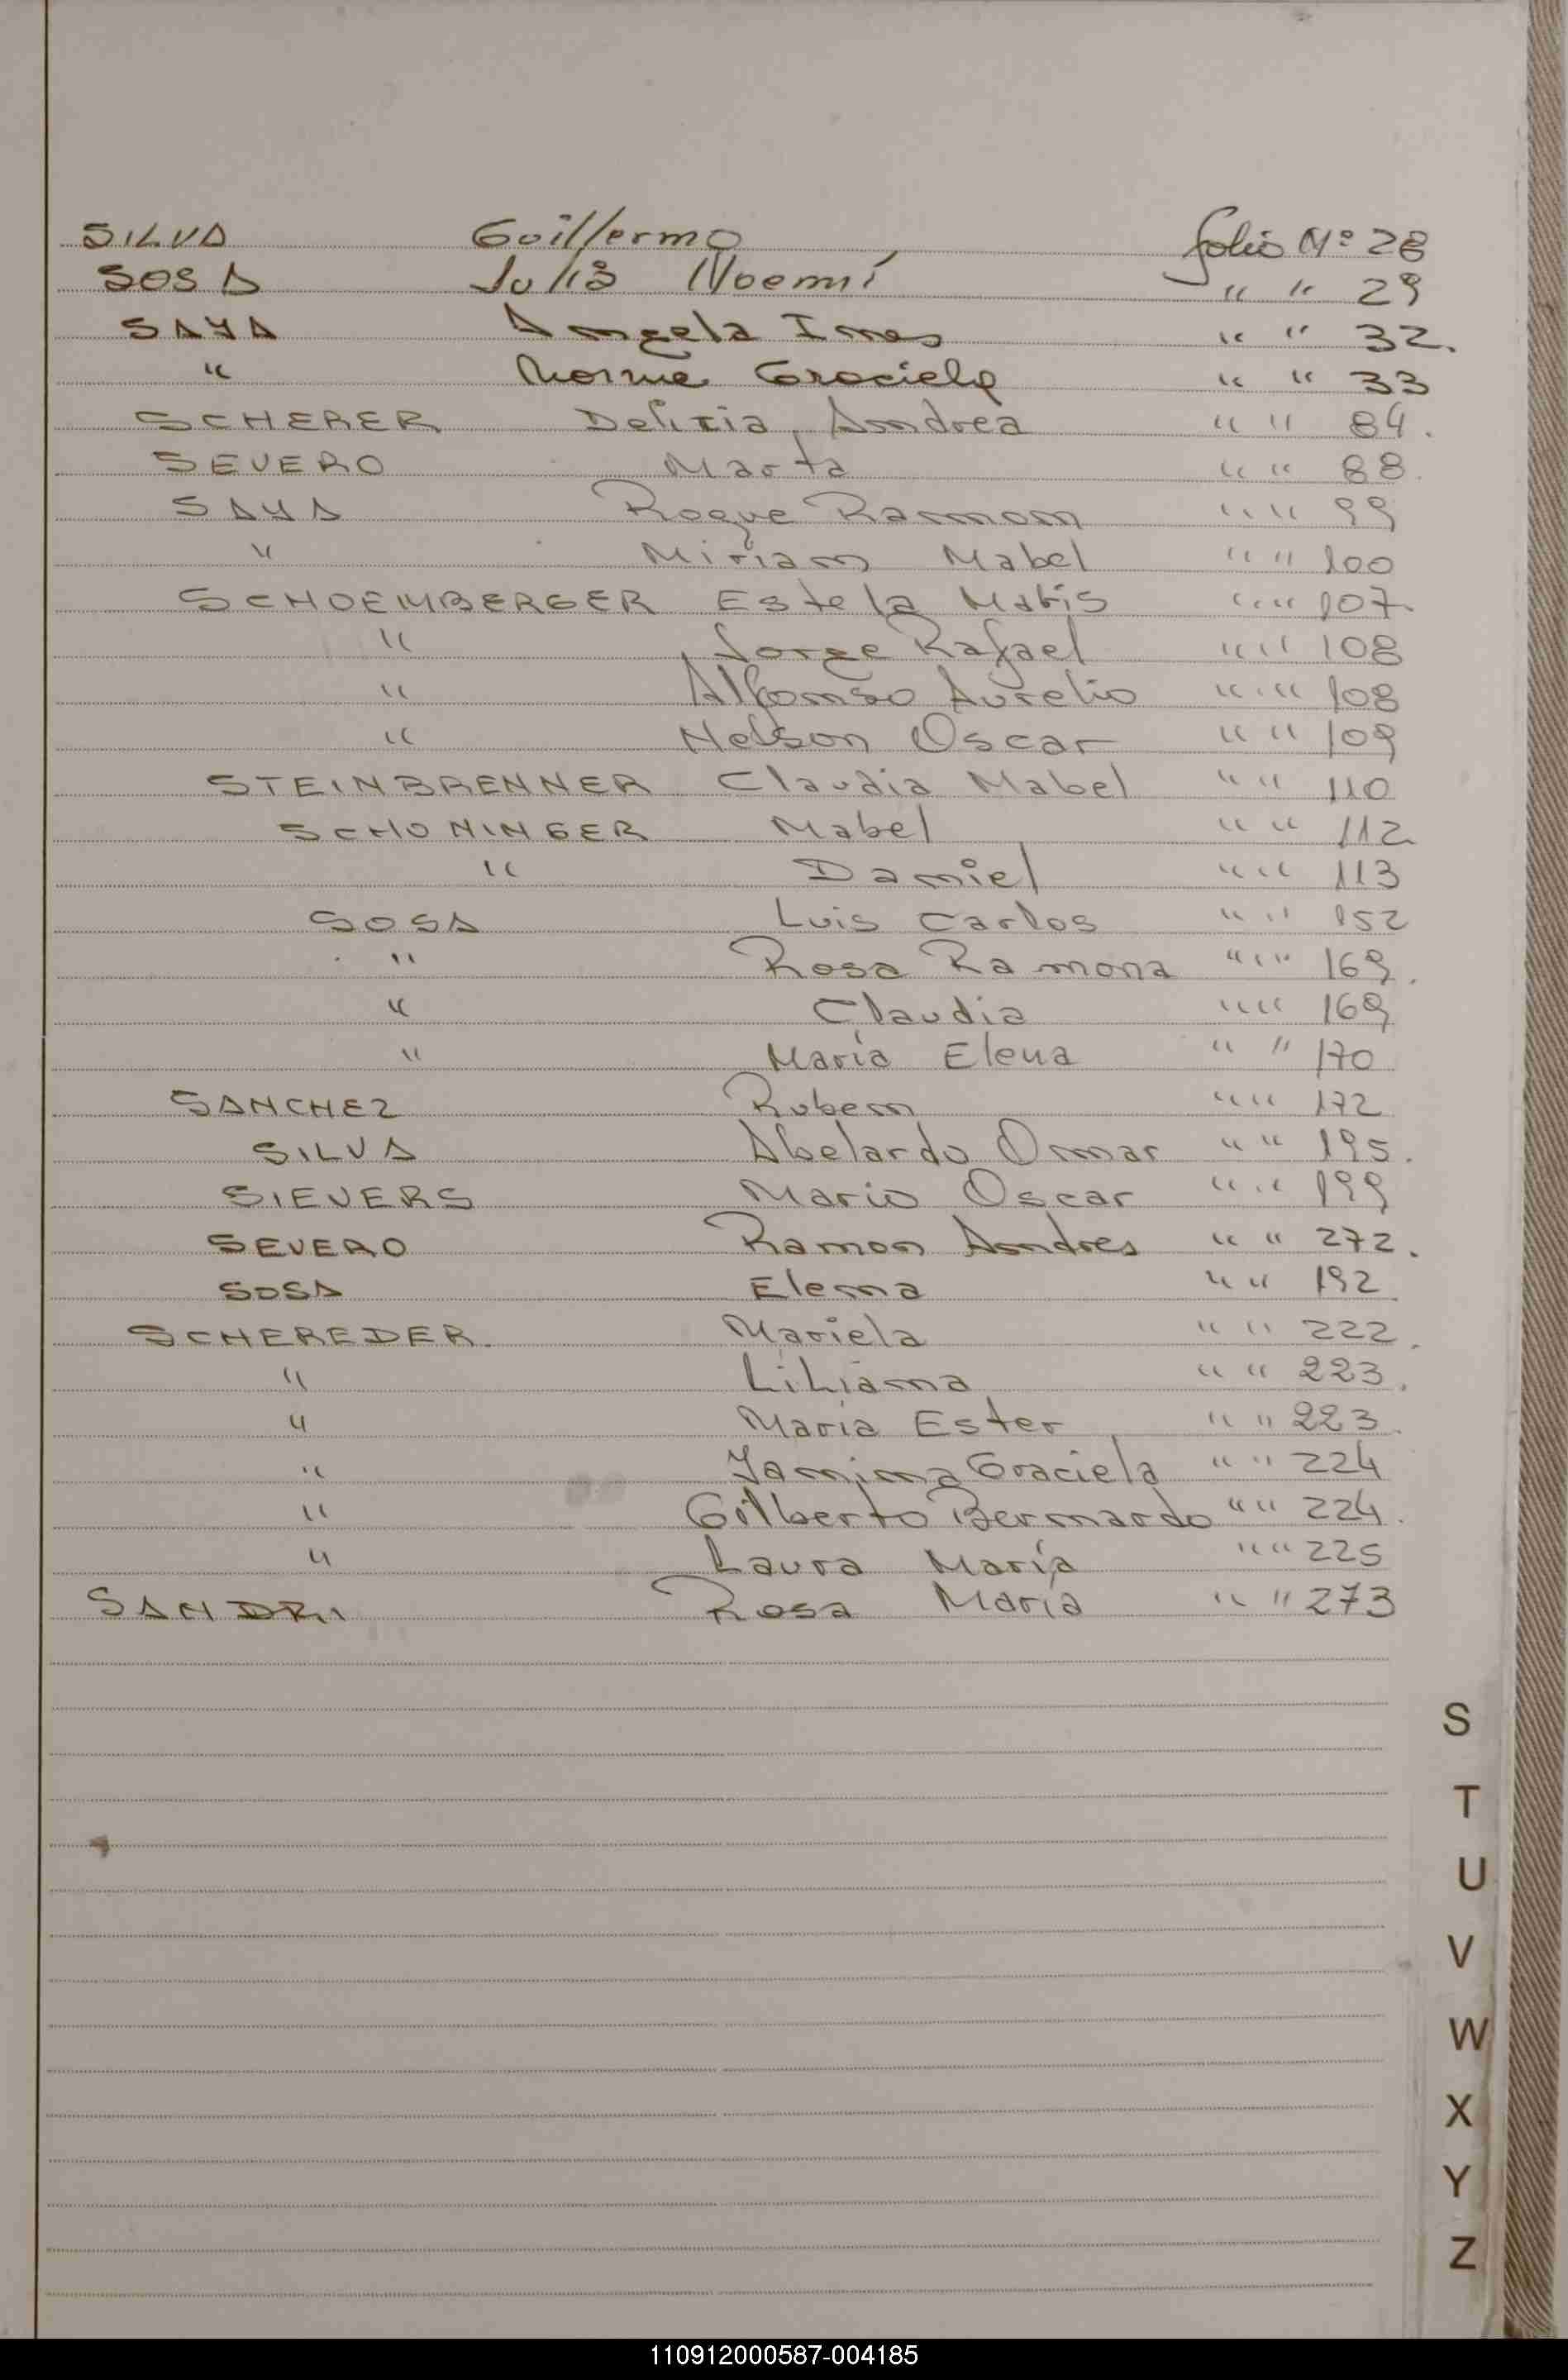 SILVA Guillermo folio Nº 28
SOSA Julia Noemí " " 29
SAYA Angela Ines " " 32.
" Norma Graciela " " 33
SCHERER Delicia, Andrea " " 84.
SEVERO Marta " " 88.
SAYA Roque Ramon " " 99
" Miriam Mabel " " 100
SCHOEMBERGER Estela Maris " " 107.
" Jorge Rafael " " 108
" Alfonso Aurelio " " 108
" Nelson Oscar " " 109
STEINBRENNER Claudia Mabel " " 110
SCHONINGER Mabel " " 112
" Daniel " " 113
SOSA Luis Carlos " " 152
" Rosa Ramona " " 169.
" Claudia " " 169
" María Elena " " 170
SANCHEZ Ruben " " 172
SILVA Abelardo Omar " " 195.
SIEVERS Mario Oscar " " 199
SEVERO Ramon Andres " " 272.
SOSA Elena " " 192
SCHEREDER. Mariela " " 222.
" Liliana " " 223.
" María Ester " " 223.
" Yanina Graciela " " 224
" Gilberto Bernardo " " 224.
" Laura María " " 225
SANDRI Rosa María " " 273
S
T
U
V
W
X
Y
Z
110912000587-004185